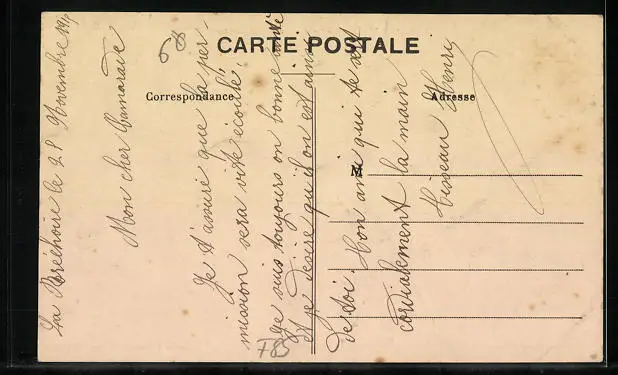 68
CARTE POSTALE
Correspondance
Adresse
M
La Bréchoire le 28 Novembre 191
Mon cher Camarade
Je t'assure que la per-
mission sera vite écoulé
Je suis toujours en bonne santé
et je désire qu'il en est ainsi
de toi. Ton ami qui te
cordialement la main
Henry
F85